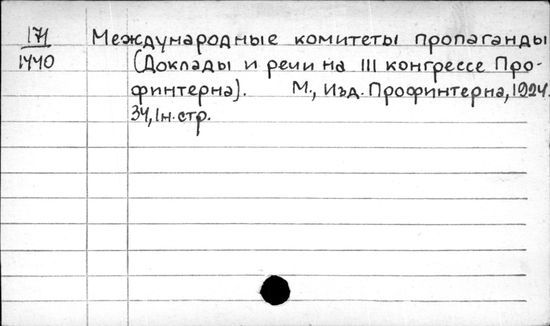 171 Международные комитеты пропаганды
1440 (Доклады и речи на III конгрессе Про-
финтерна). М., Изд. Профинтерна, 1924.
34, 1н. стр.